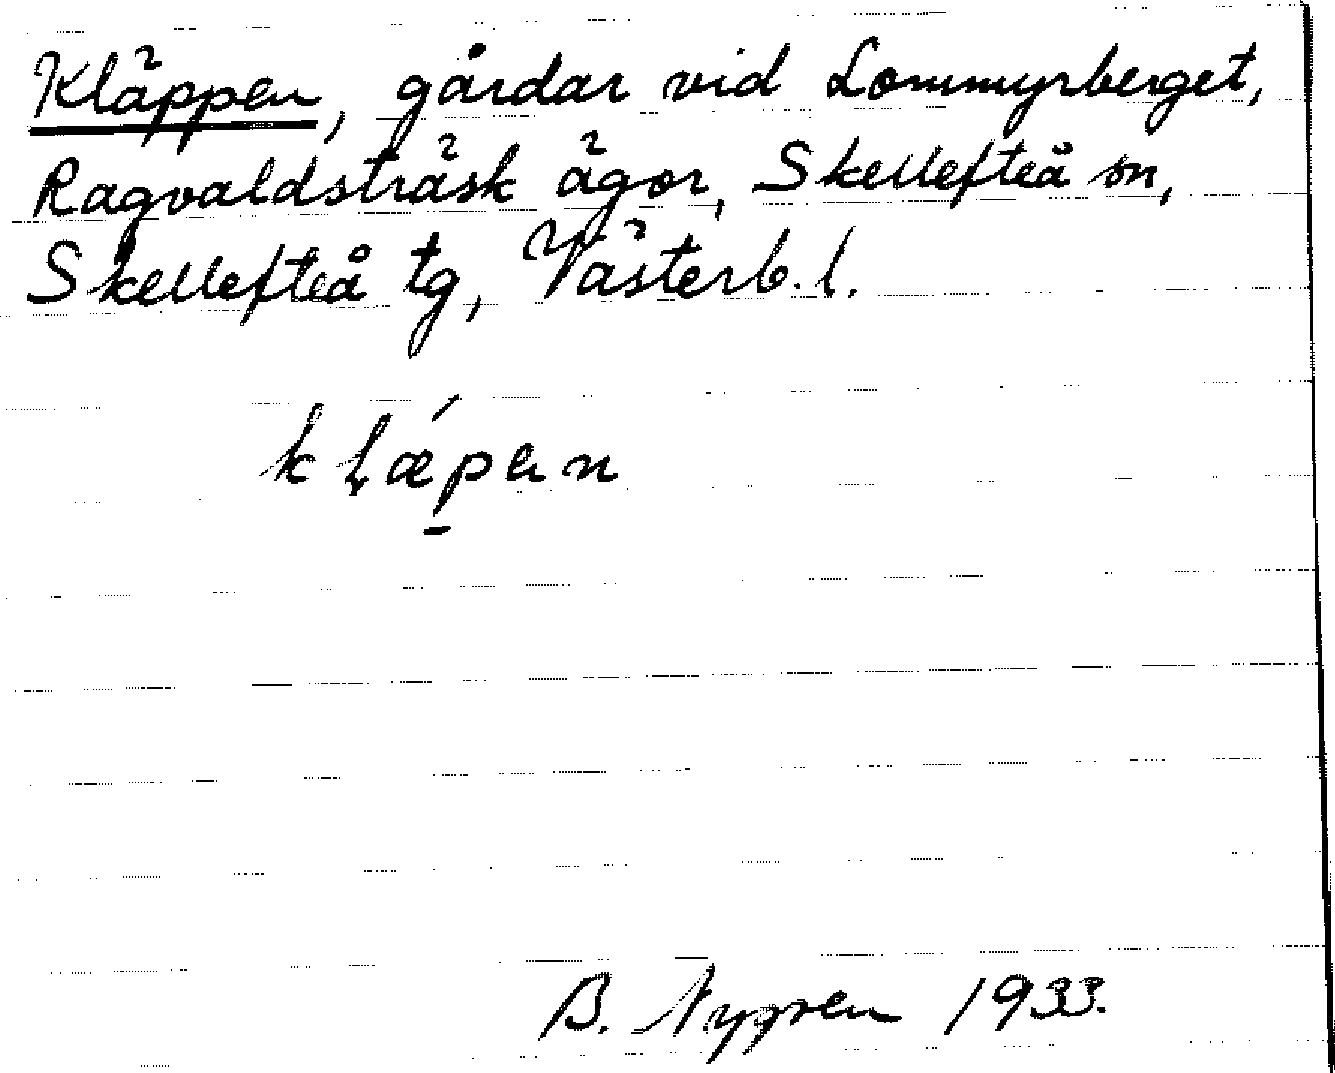 Kläppen, gårdar vid Lommyrberget,
Ragvaldsträsk ägor, Skellefteå sn,
Skellefteå tg, Västerb. l.
kḷǽp̱en
B. Nygren 1933.